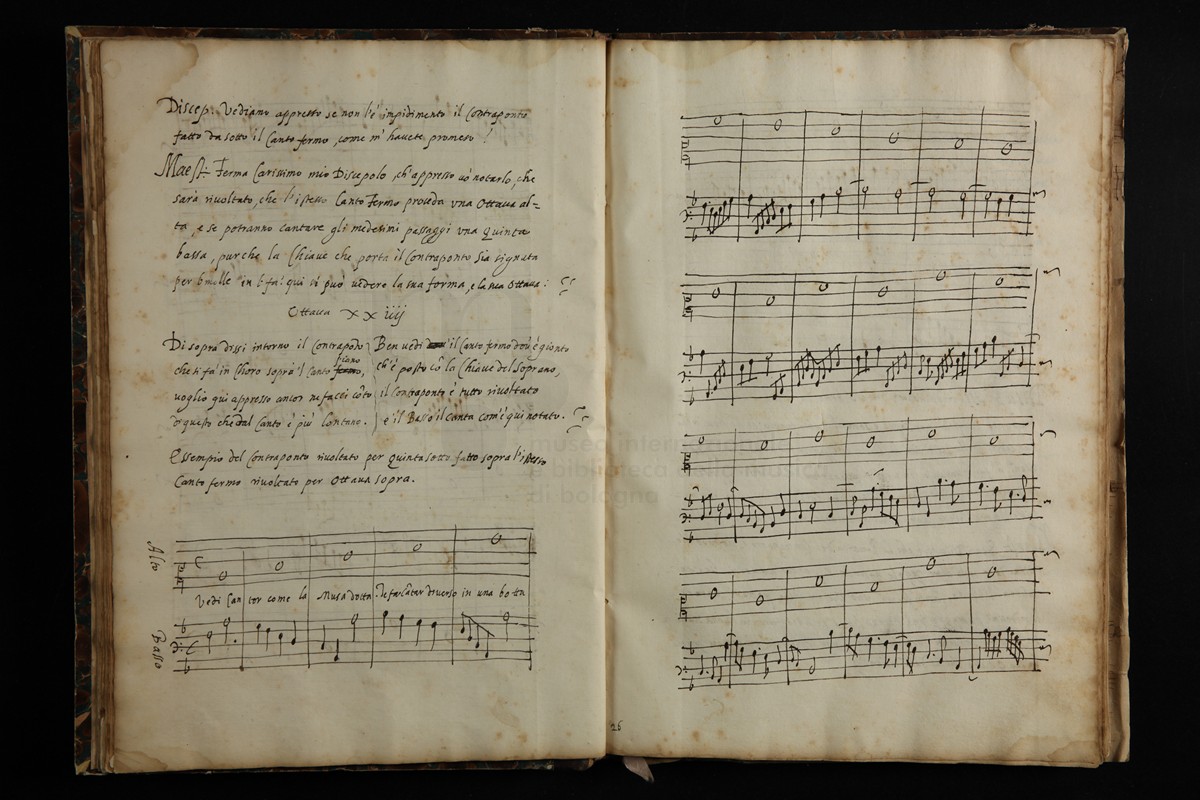 Discep. Vediamo appresso se non v'è impidimento il Contraponto
fatto da sotto il Canto fermo, come m'havete promeso!
Maest: Ferma Carissimo mio Discepolo, ch'appresso vò notarlo, che
sarà rivoltato, che l'istesso Canto fermo proceda una Ottava al=
ta, e se potranno cantare gli medesimi passaggi una quinta
bassa, purche la Chiave che porta il Contraponto sia signata
per b molle in b fa: qui si può vedere la sua forma, e la sua Ottava:
Ottava xxiiij
Di sopra dissi intorno il Contrapòdo
che si fà in Choro sopra'l Canto piano,
voglio qui appresso ancor ne facci còto
di questo che dal Canto è più lontano.
Ben vedi il Canto fermo dov'è gionto
ch'è posto cò la Chiave del Soprano,
il Contraponto è tutto rivoltato
e il Basso il canta com'è qui notato.
Essempio del Contraponto rivoltato per quinta sotto fatto sopra l'istesso
Canto fermo rivoltato per Ottava sopra.
Alto
Vedi Cantor come la Musa dotta Fa far Càtar diverso in una botta
Basso
26
museo internazionale
e biblioteca della musica
di bologna